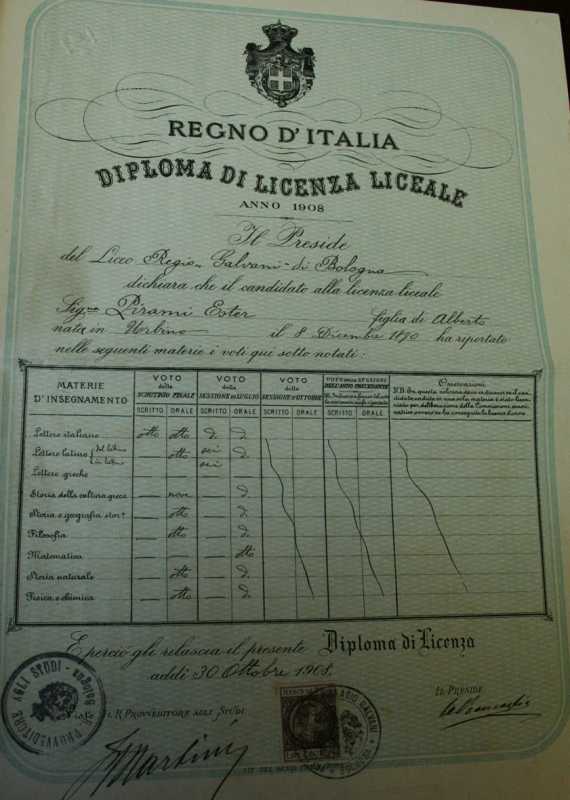 REGNO D'ITALIA
DIPLOMA DI LICENZA LICEALE
ANNO 1908
Il Preside
del Liceo Regio Galvani di Bologna
dichiara che il candidato alla licenza liceale
Pirami Ester figlia di Alberto
nata in Urbino il 8 Dicembre 1890 ha riportato
nelle seguenti materie i voti qui sotto notati:
MATERIE D'INSEGNAMENTO
VOTO dello SCRUTINIO FINALE
VOTO della SESSIONE DI LUGLIO
VOTO della SESSIONE D'OTTOBRE
Osservazioni
SCRITTO ORALE SCRITTO ORALE SCRITTO ORALE SCRITTO ORALE
Lettere italiane otto otto d. d.
Lettere latine del latino in latino — otto sei sei d.
Lettere greche — — — —
Storia della coltura greca — nove — d.
Storia e geografia stor. — otto — d.
Filosofia — otto — d.
Matematica — — — otto
Storia naturale — otto — d.
Fisica e chimica — otto — d.
E perciò gli rilascia il presente Diploma di Licenza
addì 30 Ottobre 1908.
IL R. PROVVEDITORE AGLI STUDI
IL PRESIDE
PROVVEDITORE AGLI STUDI - Bologna
GALVANI